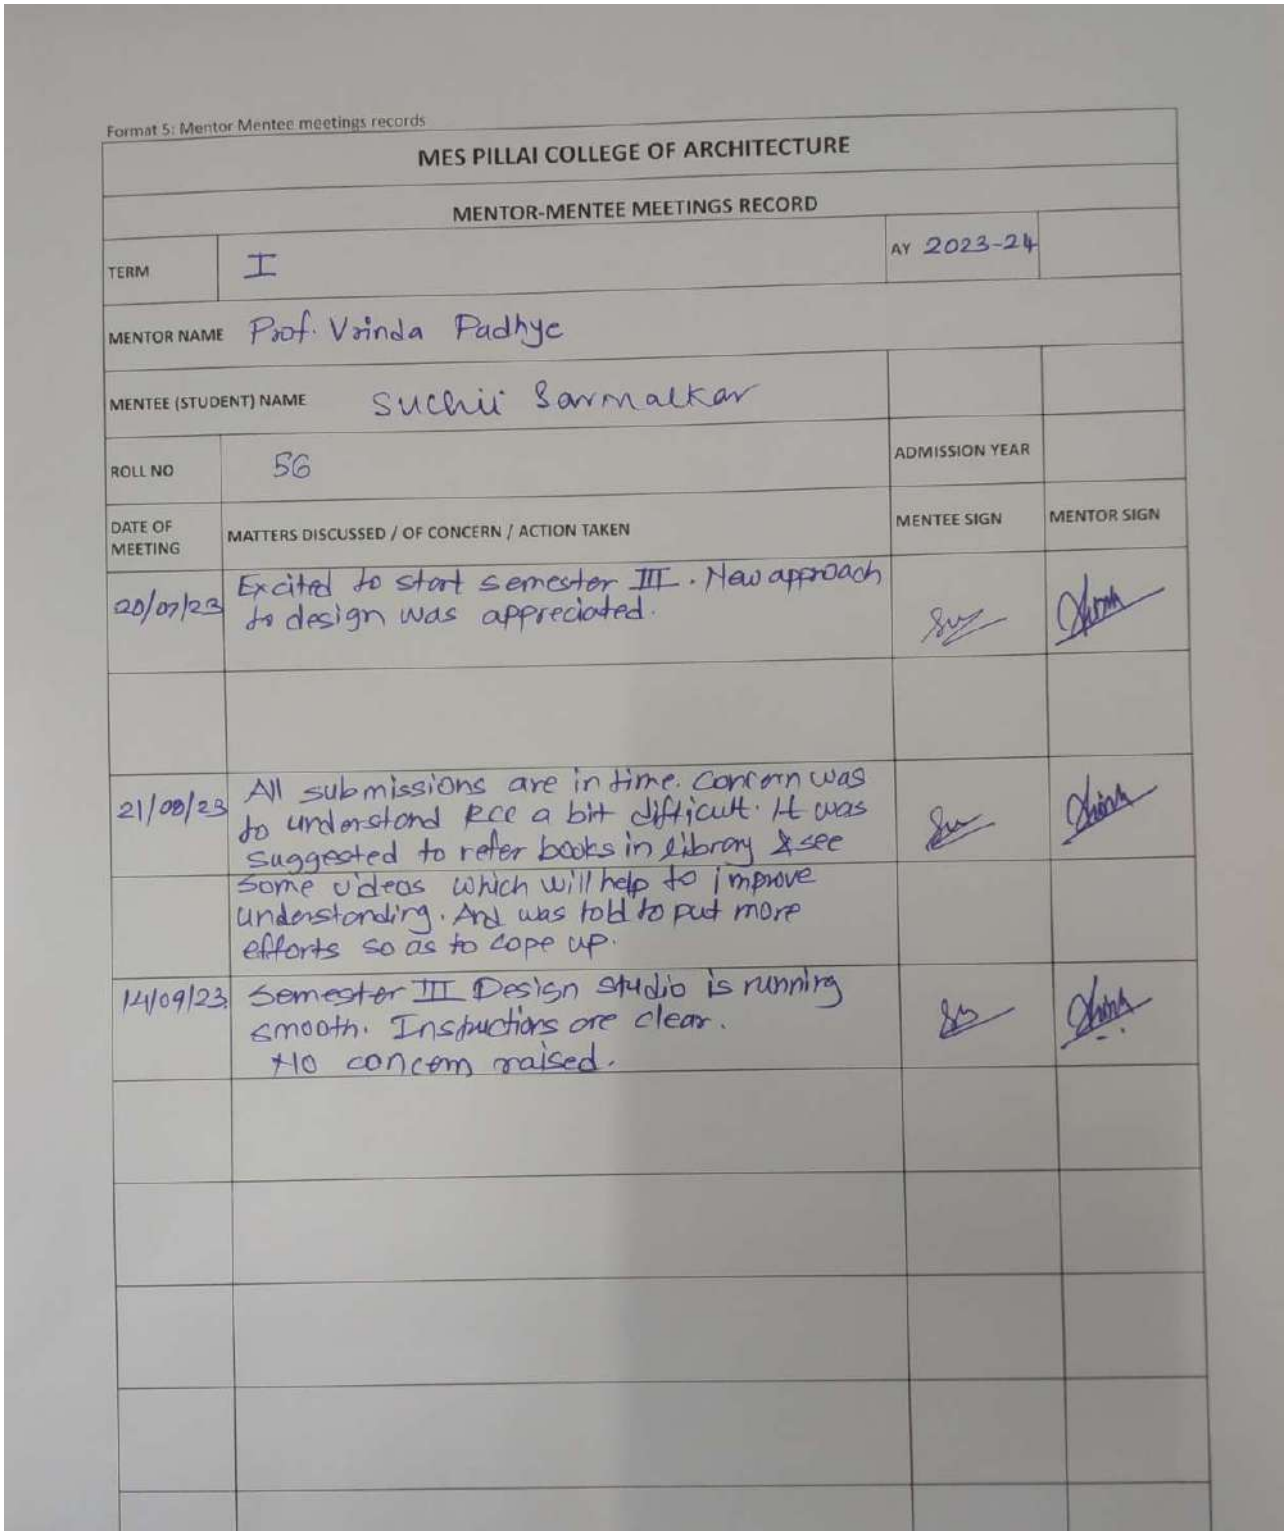 Format 5: Mentor Mentee meetings records
MES PILLAI COLLEGE OF ARCHITECTURE
MENTOR-MENTEE MEETINGS RECORD
TERM I AY 2023-24
MENTOR NAME Prof. Vrinda Padhye
MENTEE (STUDENT) NAME Suchii Sarmalkar
ROLL NO 56 ADMISSION YEAR
DATE OF MEETING MATTERS DISCUSSED / OF CONCERN / ACTION TAKEN MENTEE SIGN MENTOR SIGN
20/07/23 Excited to start semester III. New approach
to design was appreciated.
21/08/23 All submissions are in time. Concern was
to understand RCC a bit difficult. It was
suggested to refer books in library & see
some videos which will help to improve
understanding. And was told to put more
efforts so as to cope up.
14/09/23 Semester III Design studio is running
smooth. Instructions are clear.
No concern raised.